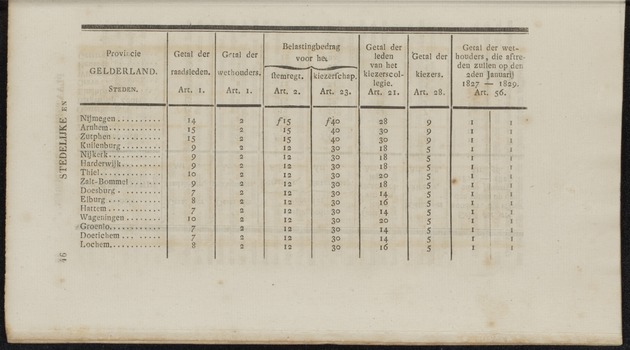 46 STEDELIJKE EN
Provincie GELDERLAND. STEDEN. | Getal der raadsleden. Art. 1. | Getal der wethouders. Art. 1. | Belastingbedrag voor het stemregt. Art. 2. | kiezerschap. Art. 23. | Getal der leden van het kiezerscollegie. Art. 21. | Getal der kiezers. Art. 28. | Getal der wethouders, die aftreden zullen op den 2den Januarij 1827 — 1829. Art. 56.
Nijmegen . . . . . . . . . . 14 2 ƒ15 ƒ40 28 9 1 1
Arnhem . . . . . . . . . . 15 2 15 40 30 9 1 1
Zutphen . . . . . . . . . . 15 2 15 40 30 9 1 1
Kuilenburg . . . . . . . . 9 2 12 30 18 5 1 1
Nijkerk . . . . . . . . . . 9 2 12 30 18 5 1 1
Harderwijk . . . . . . . . 9 2 12 30 18 5 1 1
Thiel . . . . . . . . . . 10 2 12 30 20 5 1 1
Zalt-Bommel . . . . . . 9 2 12 30 18 5 1 1
Doesburg . . . . . . . . 7 2 12 30 14 5 1 1
Elburg . . . . . . . . . . 8 2 12 30 16 5 1 1
Hattem . . . . . . . . . . 7 2 12 30 14 5 1 1
Wageningen . . . . . . . 10 2 12 30 20 5 1 1
Groenlo . . . . . . . . . . 7 2 12 30 14 5 1 1
Doetichem . . . . . . . . 7 2 12 30 14 5 1 1
Lochem . . . . . . . . . . 8 2 12 30 16 5 1 1